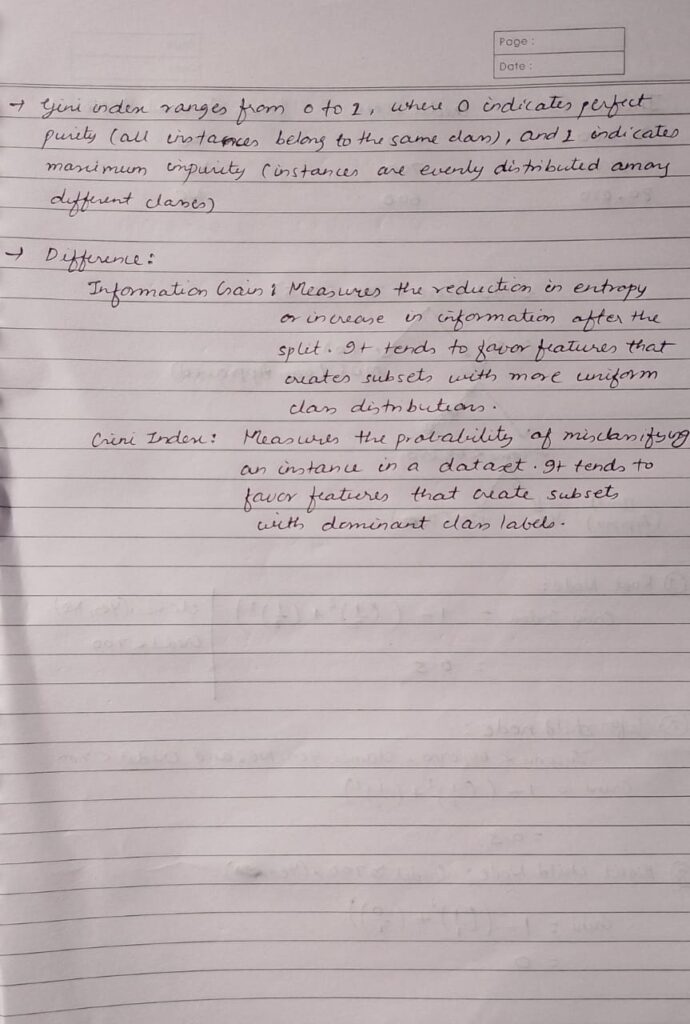 Page :
Date :
→ Gini index ranges from 0 to 1, where 0 indicates perfect
purity (all instances belong to the same class), and 1 indicates
maximum impurity (instances are evenly distributed among
different classes)
→ Difference :
Information Gain : Measures the reduction in entropy
or increase in information after the
split. It tends to favor features that
creates subsets with more uniform
class distributions.
Gini Index : Measures the probability of misclassifying
an instance in a dataset. It tends to
favor features that create subsets
with dominant class labels.